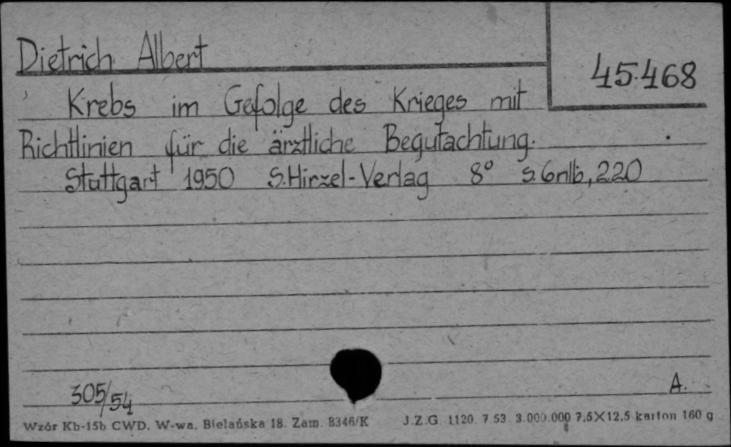 Dietrich Albert
45.468
Krebs im Gefolge des Krieges mit
Richtlinien für die ärztliche Begutachtung.
Stuttgart 1950 S.Hirzel-Verlag 8° s.6nlb,220
305/54
A.
Wzór Kb-15b CWD. W-wa, Bielańska 18. Zam. 8346/K J.Z.G. 1120. 7.53. 3.000.000 7,5×12,5 karton 160 g